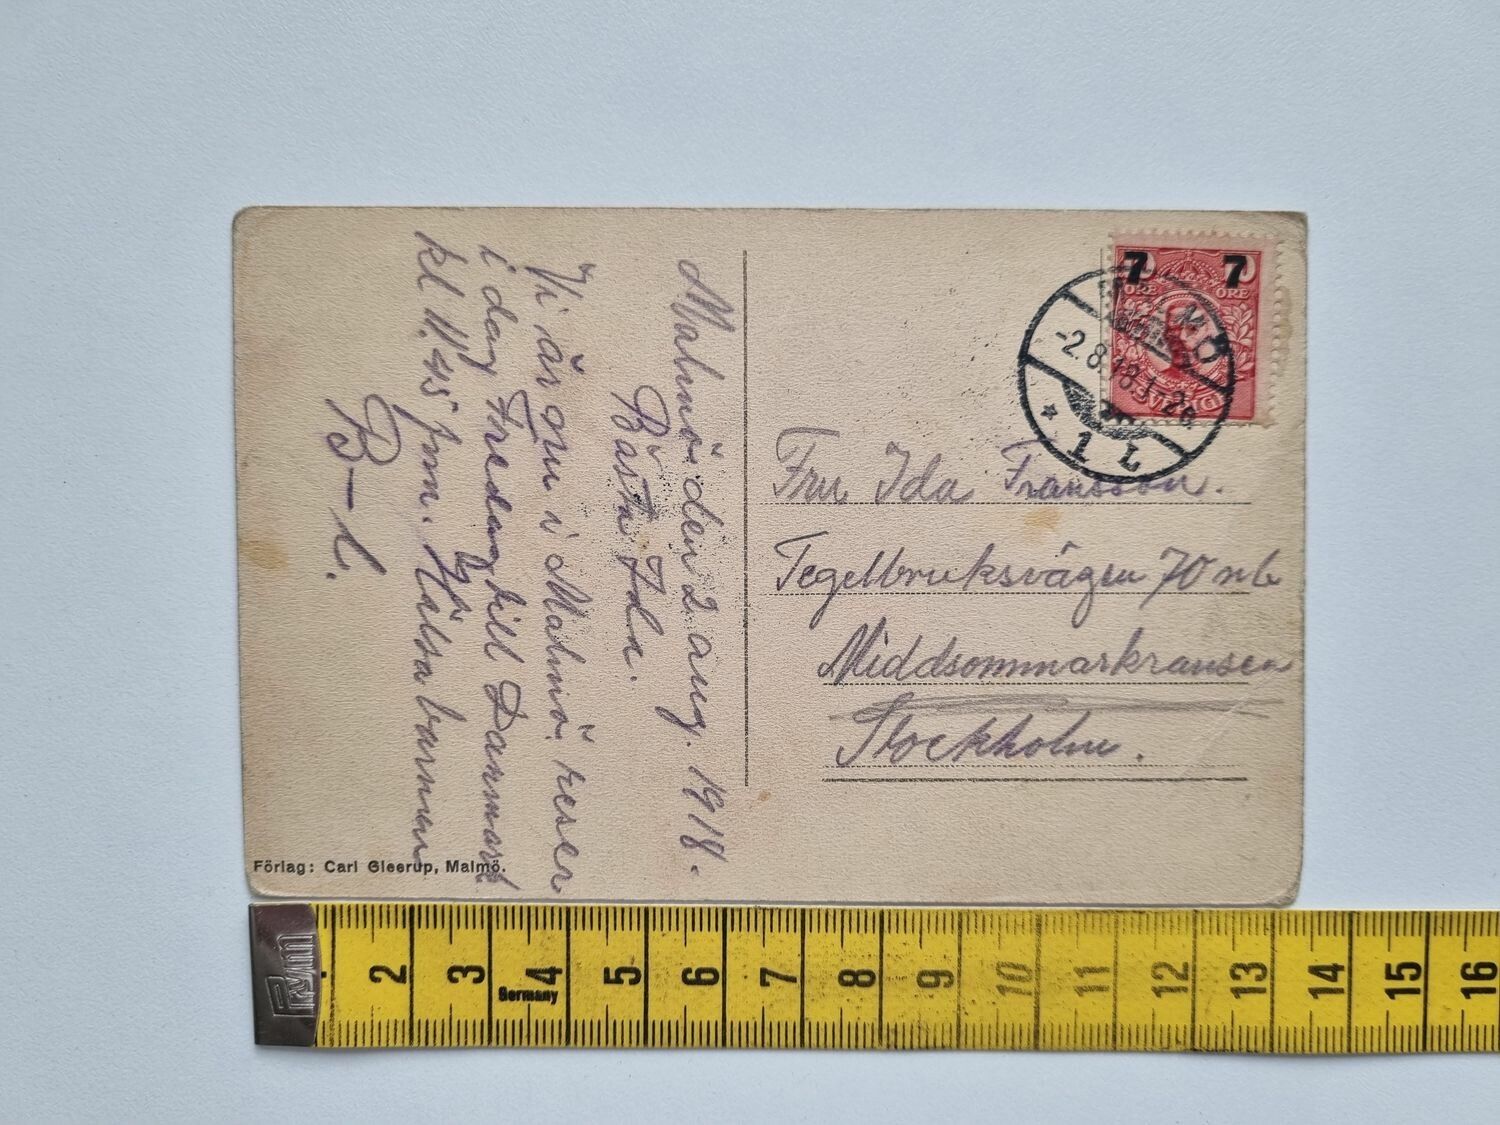 Malmö den 2 aug. 1918.
Bästa Ida.
Vi är nu i Malmö. reser
i dag Fredag till Danmark
kl 11.45 fm. Hälsa barnen
B-l.
Förlag: Carl Gleerup, Malmö.
7 7
ÖRE ÖRE
SVERIGE
MALMÖ
-2.8.18.1-2e
* 1 1
Fru Ida Fransson.
Tegelbruksvägen 70 nb
Middsommarkransen
Stockholm.
Prym
2 3 4 5 6 7 8 9 10 11 12 13 14 15 16
Germany